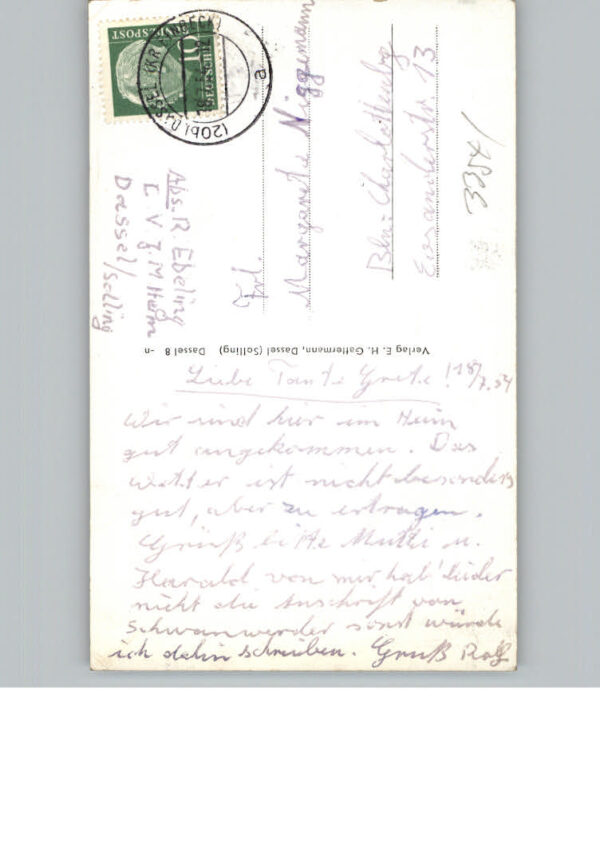 BUNDESPOST
10
DEUTSCHE
(20b) DASSEL (KR EINBECK)
a
Abs. R. Ebeling
C. V. J. M Heim
Dassel/Solling
Frl.
Margarete Niggemann
Bln.-Charlottenbg
Evanderstr 13
3354/
Verlag E. H. Gattermann, Dassel (Solling) Dassel 8 -n
Liebe Tante Grete! 18/7.54
Wir sind hier im Heim
gut angekommen. Das
wetter ist nicht besonders
gut, aber zu ertragen.
Grüß bitte Mutti u.
Harald von mir, hab' leider
nicht die Anschrift von
Schwanwerder sonst würde
ich dahin schreiben. Gruß Rolf